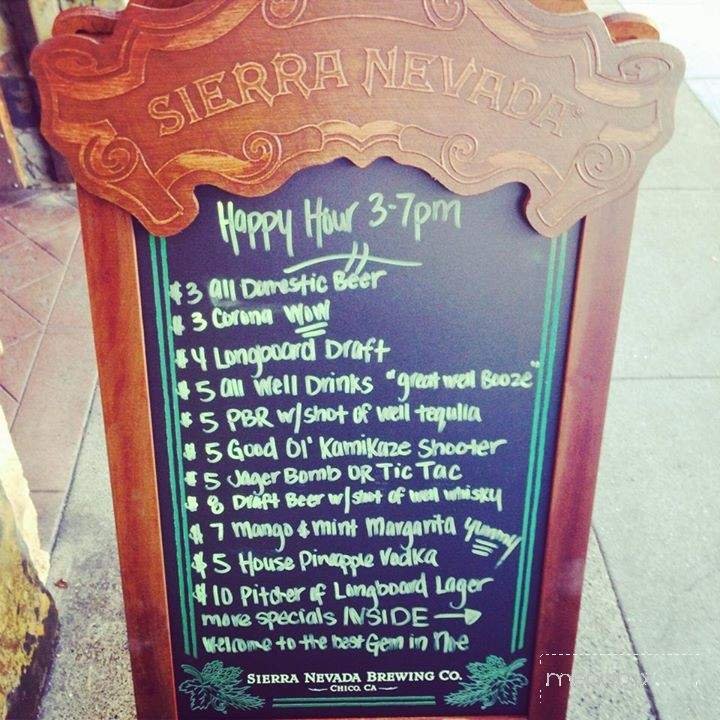 SIERRA NEVADA
Happy Hour 3-7pm
$3 all Domestic Beer
$3 Corona WOW
$4 Longboard Draft
$5 all Well Drinks "great well Booze"
$5 PBR w/shot of well tequlia
$5 Good Ol' Kamikaze Shooter
$5 Jager Bomb OR Tic Tac
$8 Draft Beer w/shot of well whisky
$7 mango & mint Margarita yummy
$5 House Pineapple Vodka
$10 Pitcher of Longboard Lager
more specials INSIDE →
Welcome to the best Gem in Noe
SIERRA NEVADA BREWING CO.
CHICO, CA